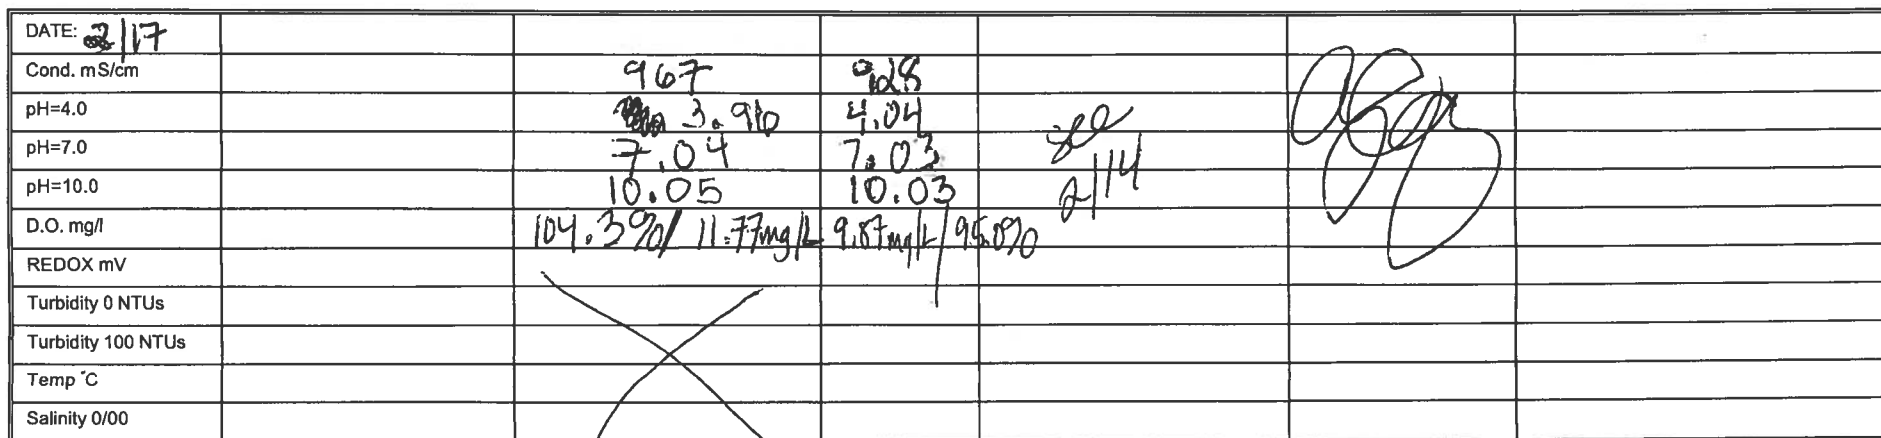 DATE: 2/17
Cond. mS/cm 967 928
pH=4.0 3.96 4.04
pH=7.0 7.04 7.03
pH=10.0 10.05 10.03 2/14
D.O. mg/l 104.3%/ 11.77mg/L 9.87mg/L/ 95.0%
REDOX mV
Turbidity 0 NTUs
Turbidity 100 NTUs
Temp °C
Salinity 0/00